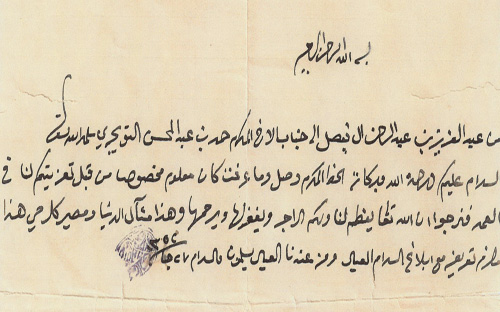 بسم الله الرحمن الرحيم
من عبد العزيز بن عبد الرحمن ال فيصل إلى جناب الاخ المكرم حمد بن عبد المحسن التويجري سلمه الله تعالى
السلام عليكم ورحمة الله وبركاته الخط المكرم وصل وما عرفت كان معلوم مخصوصا من قبل تعزيتكم لنا في
العمه فنرجوا ان الله تعالى يعظم لنا ولكم الاجر ويغفر لها ويرحمها وهذا مئآل الدنيا ومصير كل حي هذا
ما لزم تعريفه مع ابلاغ السلام العيال ومن عندنا العيال يسلمون والسلام